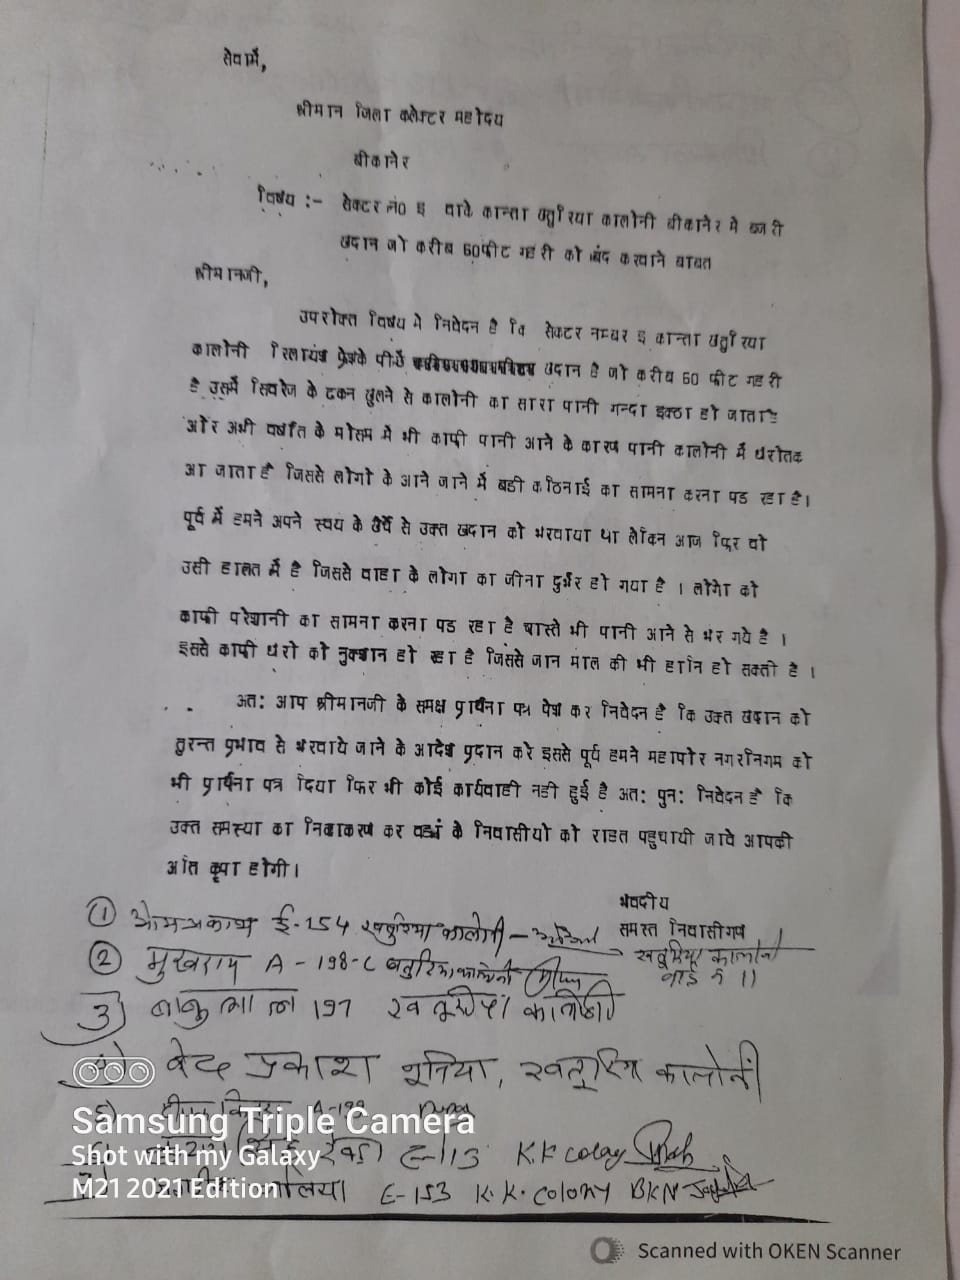 सेवामें,
श्रीमान जिला कलेक्टर महोदय
बीकानेर
विषय :- सेक्टर नं0 इ वाके कान्ता खतुरिया कालोनी बीकानेर मे बजरी
खदान जो करीब 60फीट गहरी को बंद करवाने बाबत
श्रीमानजी,
उपरोक्त विषय मे निवेदन है कि सेक्टर नम्बर इ कान्ता खतुरिया
कालोनी रिलायंस फ्रेशके पीछे खदान है जो करीब 60 फीट गहरी
है उसमें सिवरेज के ढकन खुलने से कालोनी का सारा पानी गन्दा इक्ठा हो जाताहै
ओर अभी वर्षात के मोसम मे भी काफी पानी आने के कारण पानी कालोनी में घरोतक
आ जाता है जिससे लोगो के आने जाने में बडी कठिनाई का सामना करना पड रहा है।
पूर्व में हमने अपने स्वय के खर्चे से उक्त खदान को भरवाया था लेकिन आज फिर वो
उसी हालत में है जिससे वाहा के लोगा का जीना दुर्भर हो गया है । लोगो को
काफी परेशानी का सामना करना पड रहा है रास्ते भी पानी आने से भर गये है ।
इससे काफी घरो को नुक्शान हो रहा है जिससे जान माल की भी हानि हो सक्ती है ।
अत: आप श्रीमानजी के समक्ष प्रार्थना पत्र पेश कर निवेदन है कि उक्त खदान को
तुरन्त प्रभाव से भरवाये जाने के आदेश प्रदान करे इससे पूर्व हमने महापोर नगरनिगम को
भी प्रार्थना पत्र दिया फिर भी कोई कार्यवाही नही हुई है अत: पुन: निवेदन है कि
उक्त समस्या का निवाकरण कर वहां के निवासीयो को राहत पहुचायी जावे आपकी
अति कृपा होगी।
भवदीय
समस्त निवासीगण
खतुरिया कालोनी
वार्ड नं 11
① ओमप्रकाश ई-154 खतुरिया कालोनी -
② मुखराम A - 198-C खतुरिया कालोनी
3) बाबु लाल 197 खतूरिया कालोनी
वेद प्रकाश धूनिया, खतूरिया कालोनी
5) A-199
6) E-113 K.K colony
7) E-153 K.K. Colony BKN
Samsung Triple Camera
Shot with my Galaxy
M21 2021 Edition
Scanned with OKEN Scanner